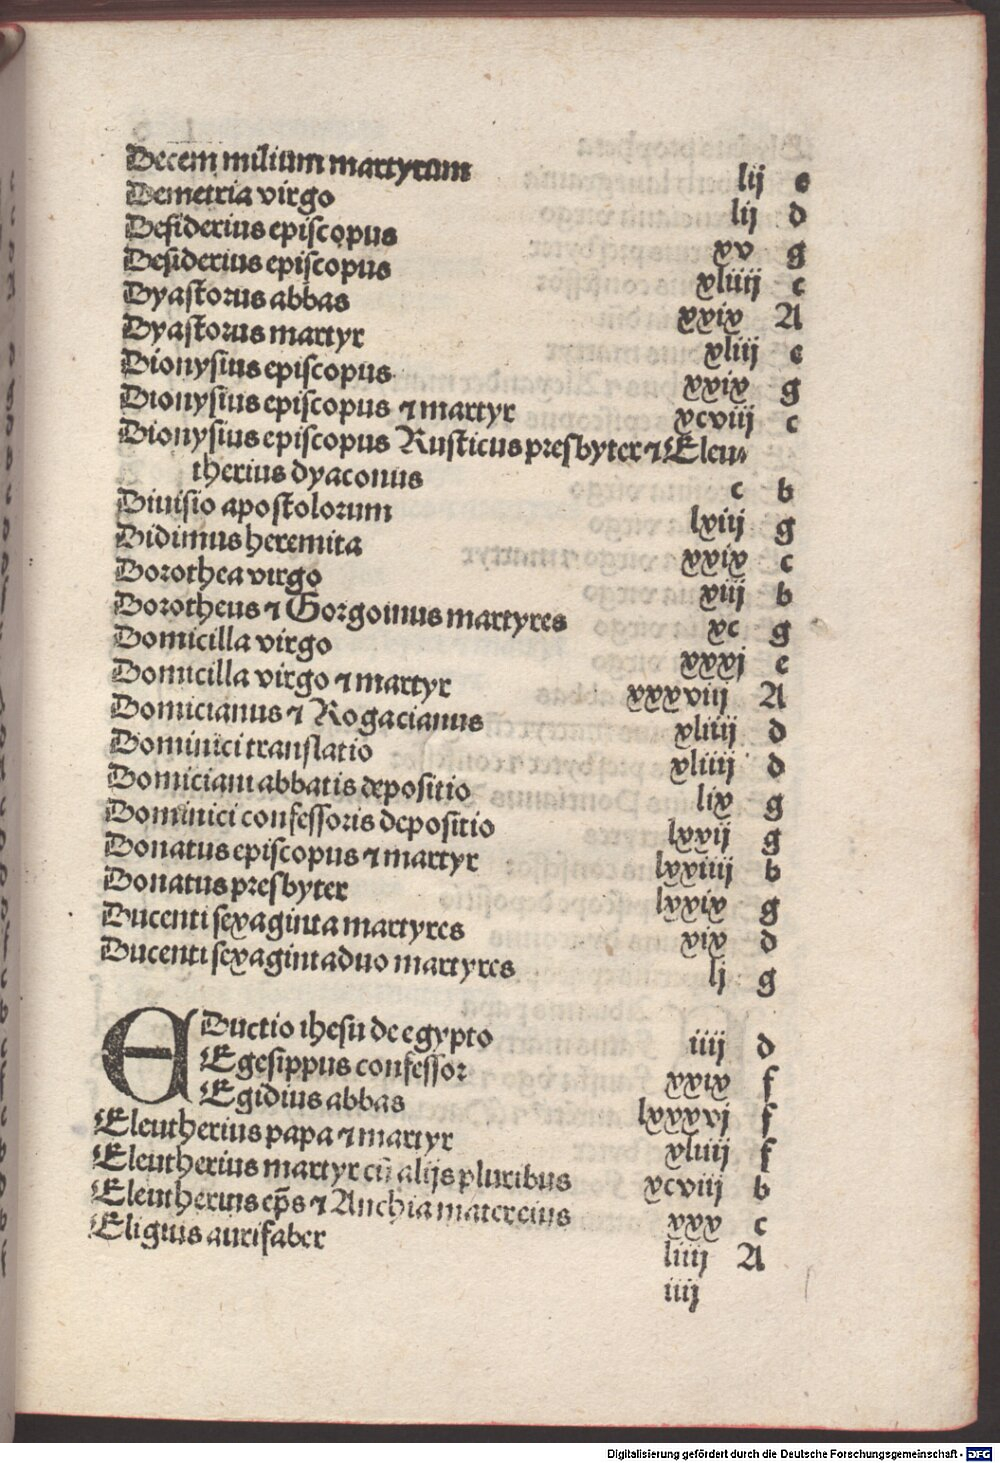 Decem milium martyrum lij e
Demetria virgo lij d
Desiderius episcopus xv g
Desiderius episcopus xliiij c
Dyastorus abbas xxix A
Dyastorus martyr xliij e
Dionysius episcopus xxix g
Dionysius episcopus ⁊ martyr xcviij c
Dionysius episcopus Rusticus presbyter ⁊ Eleu⸗
therius dyaconus c b
Diuisio apostolorum lxiij g
Didimus heremita xxix c
Dorothea virgo xiij b
Dorotheus ⁊ Gorgonius martyres xc g
Domicilla virgo xxxj e
Domicilla virgo ⁊ martyr xxxviij A
Domicianus ⁊ Rogacianus xliiij d
Dominici translatio xliiij d
Domiciani abbatis depositio lix g
Dominici confessoris depositio lxxij g
Donatus episcopus ⁊ martyr lxxiiij b
Donatus presbyter lxxix g
Ducenti sexaginta martyres xix d
Ducenti sexagintaduo martyres lj g
EDuctio ihesu de egypto iiij d
Egesippus confessor xxix f
Egidius abbas lxxxvj f
Eleutherius papa ⁊ martyr xliiij f
Eleutherius martyr cū alijs pluribus xcviij b
Eleutherius ep̄s ⁊ Anchia mater eius xxx c
Eligius aurifaber liiij A
iiij
Digitalisierung gefördert durch die Deutsche Forschungsgemeinschaft - DFG